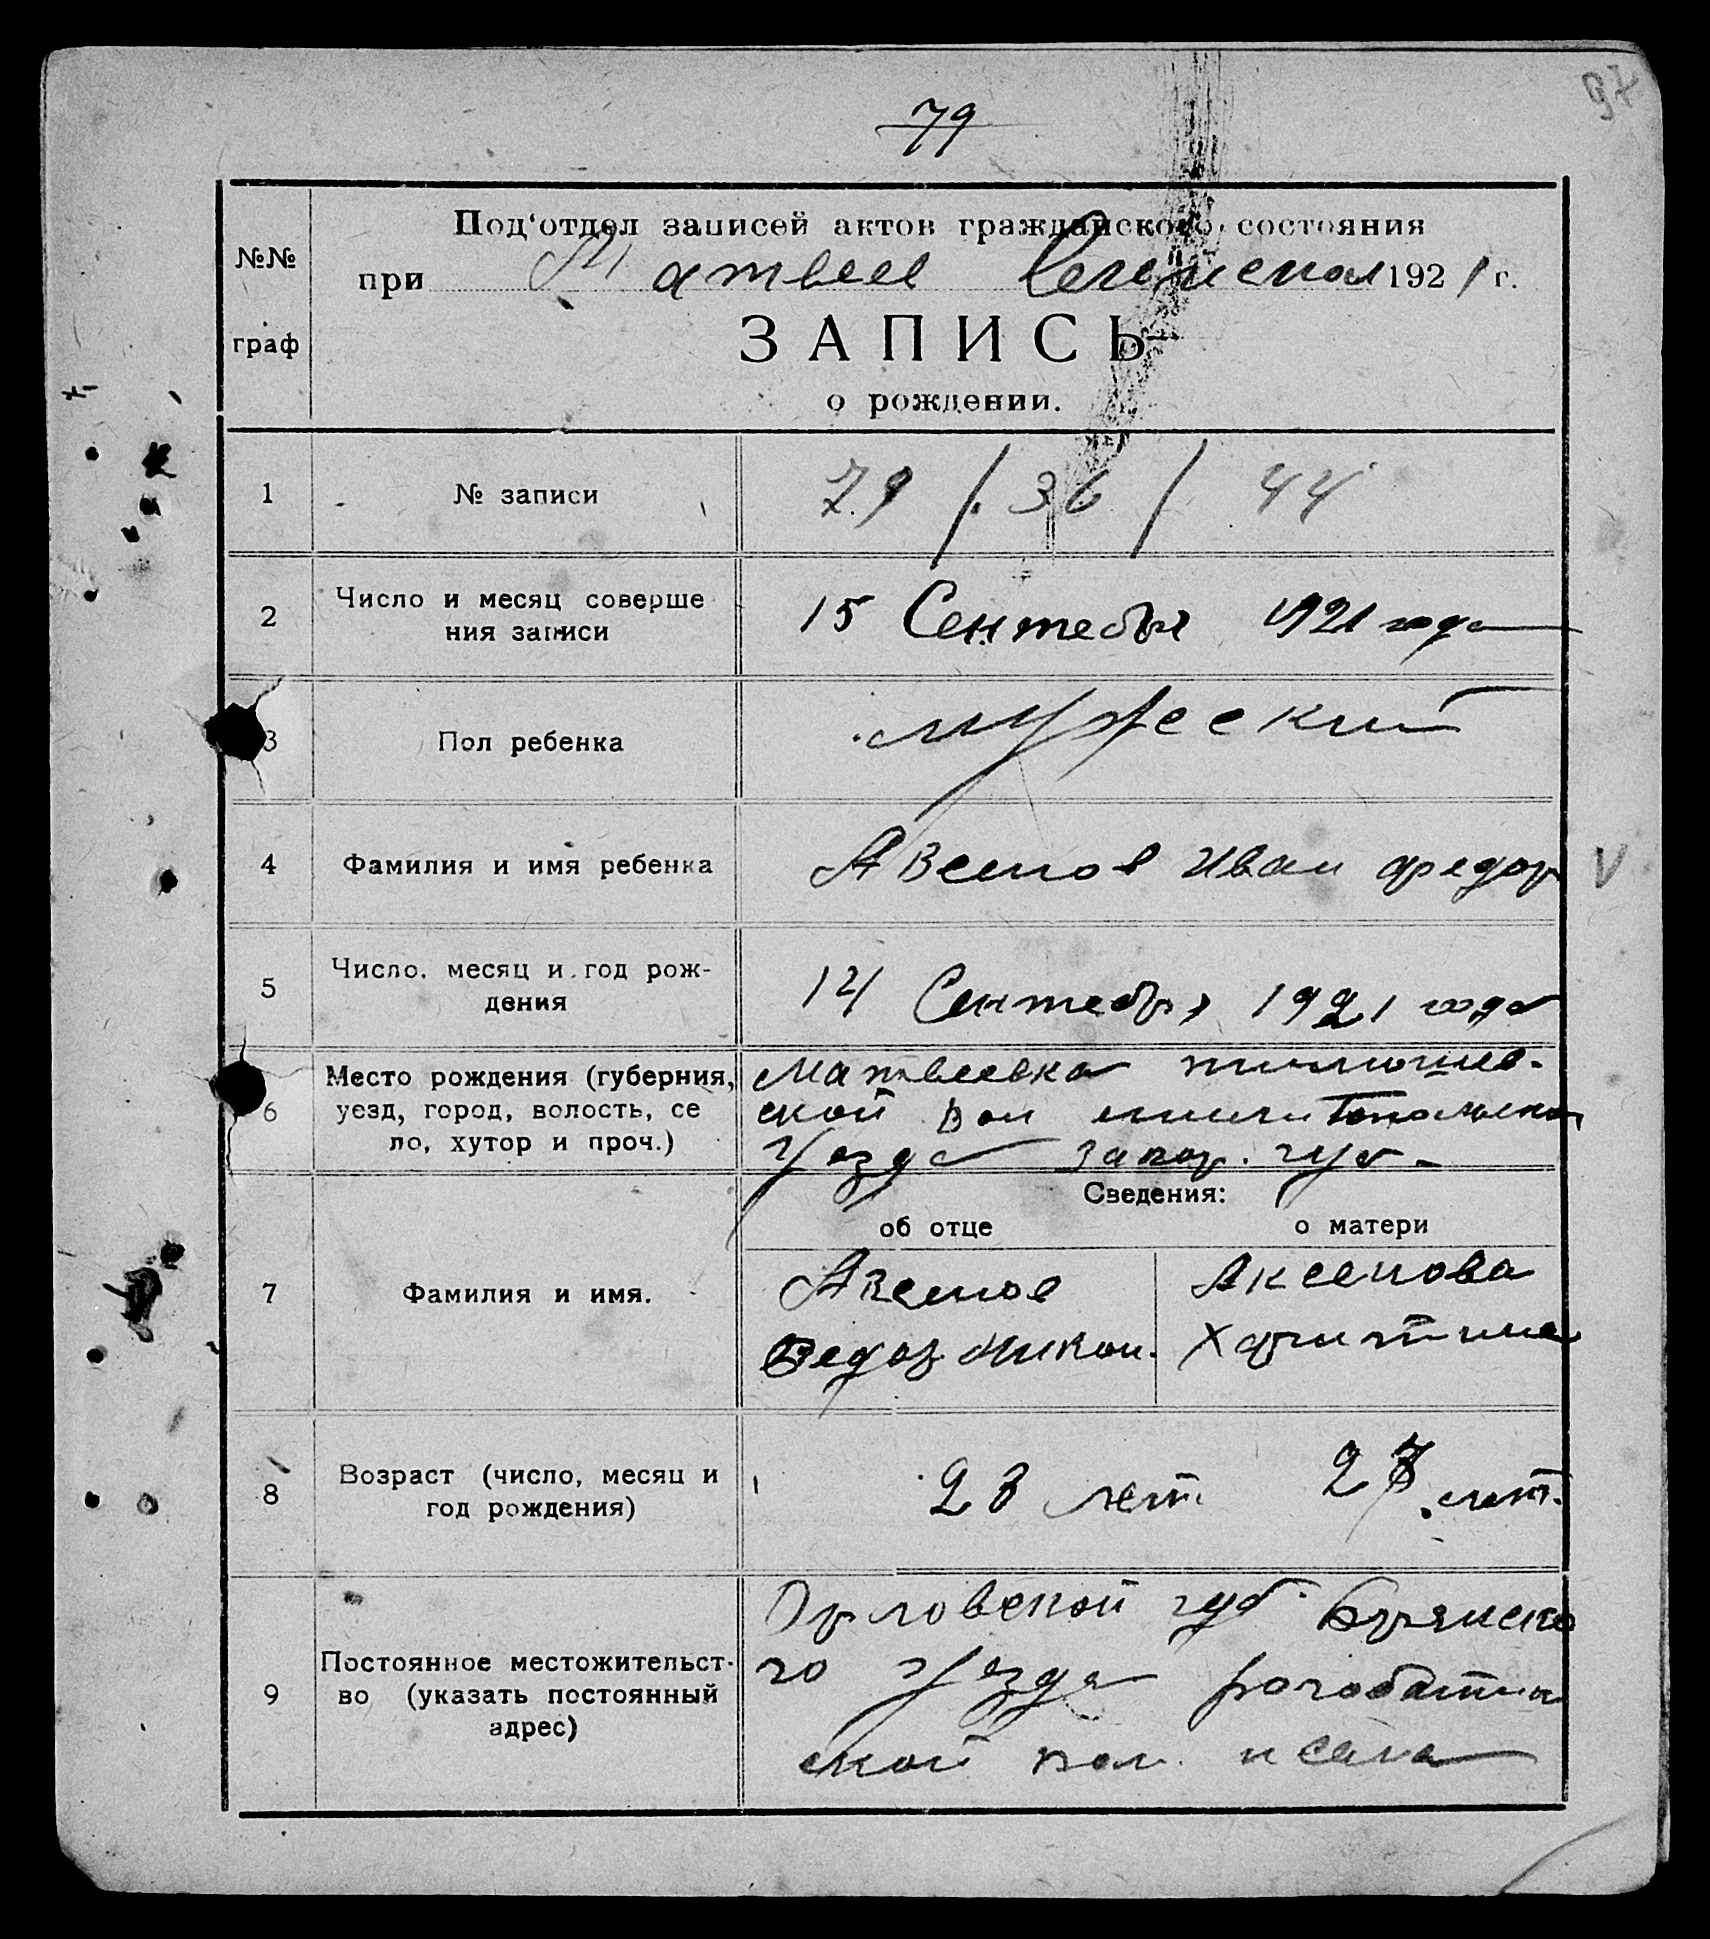 97
79
№№
граф
Под‘отдел записей актов гражданского состояния
при 1921 г.
ЗАПИСЬ
о рождении.
1 № записи 79 / 36 / 44
2 Число и месяц соверше
ния записи
15 Сентебря 1921 года
3 Пол ребенка
мужеский
4 Фамилия и имя ребенка
Иван Федор
V
5 Число, месяц и год рож-
дения
14 Сентебря 1921 года
6 Место рождения (губерния,
уезд, город, волость, се
ло, хутор и проч.)
Матвеевка
ской Вол
Уезда Запор. губ.
Сведения:
об отце о матери
7 Фамилия и имя.
Аксенова
Федор Никол. Харитина
8 Возраст (число, месяц и
год рождения)
23 лет лет.
9 Постоянное местожительст-
во (указать постоянный
адрес)
Орловской губ Брянско
го Уезда
ской вол. села